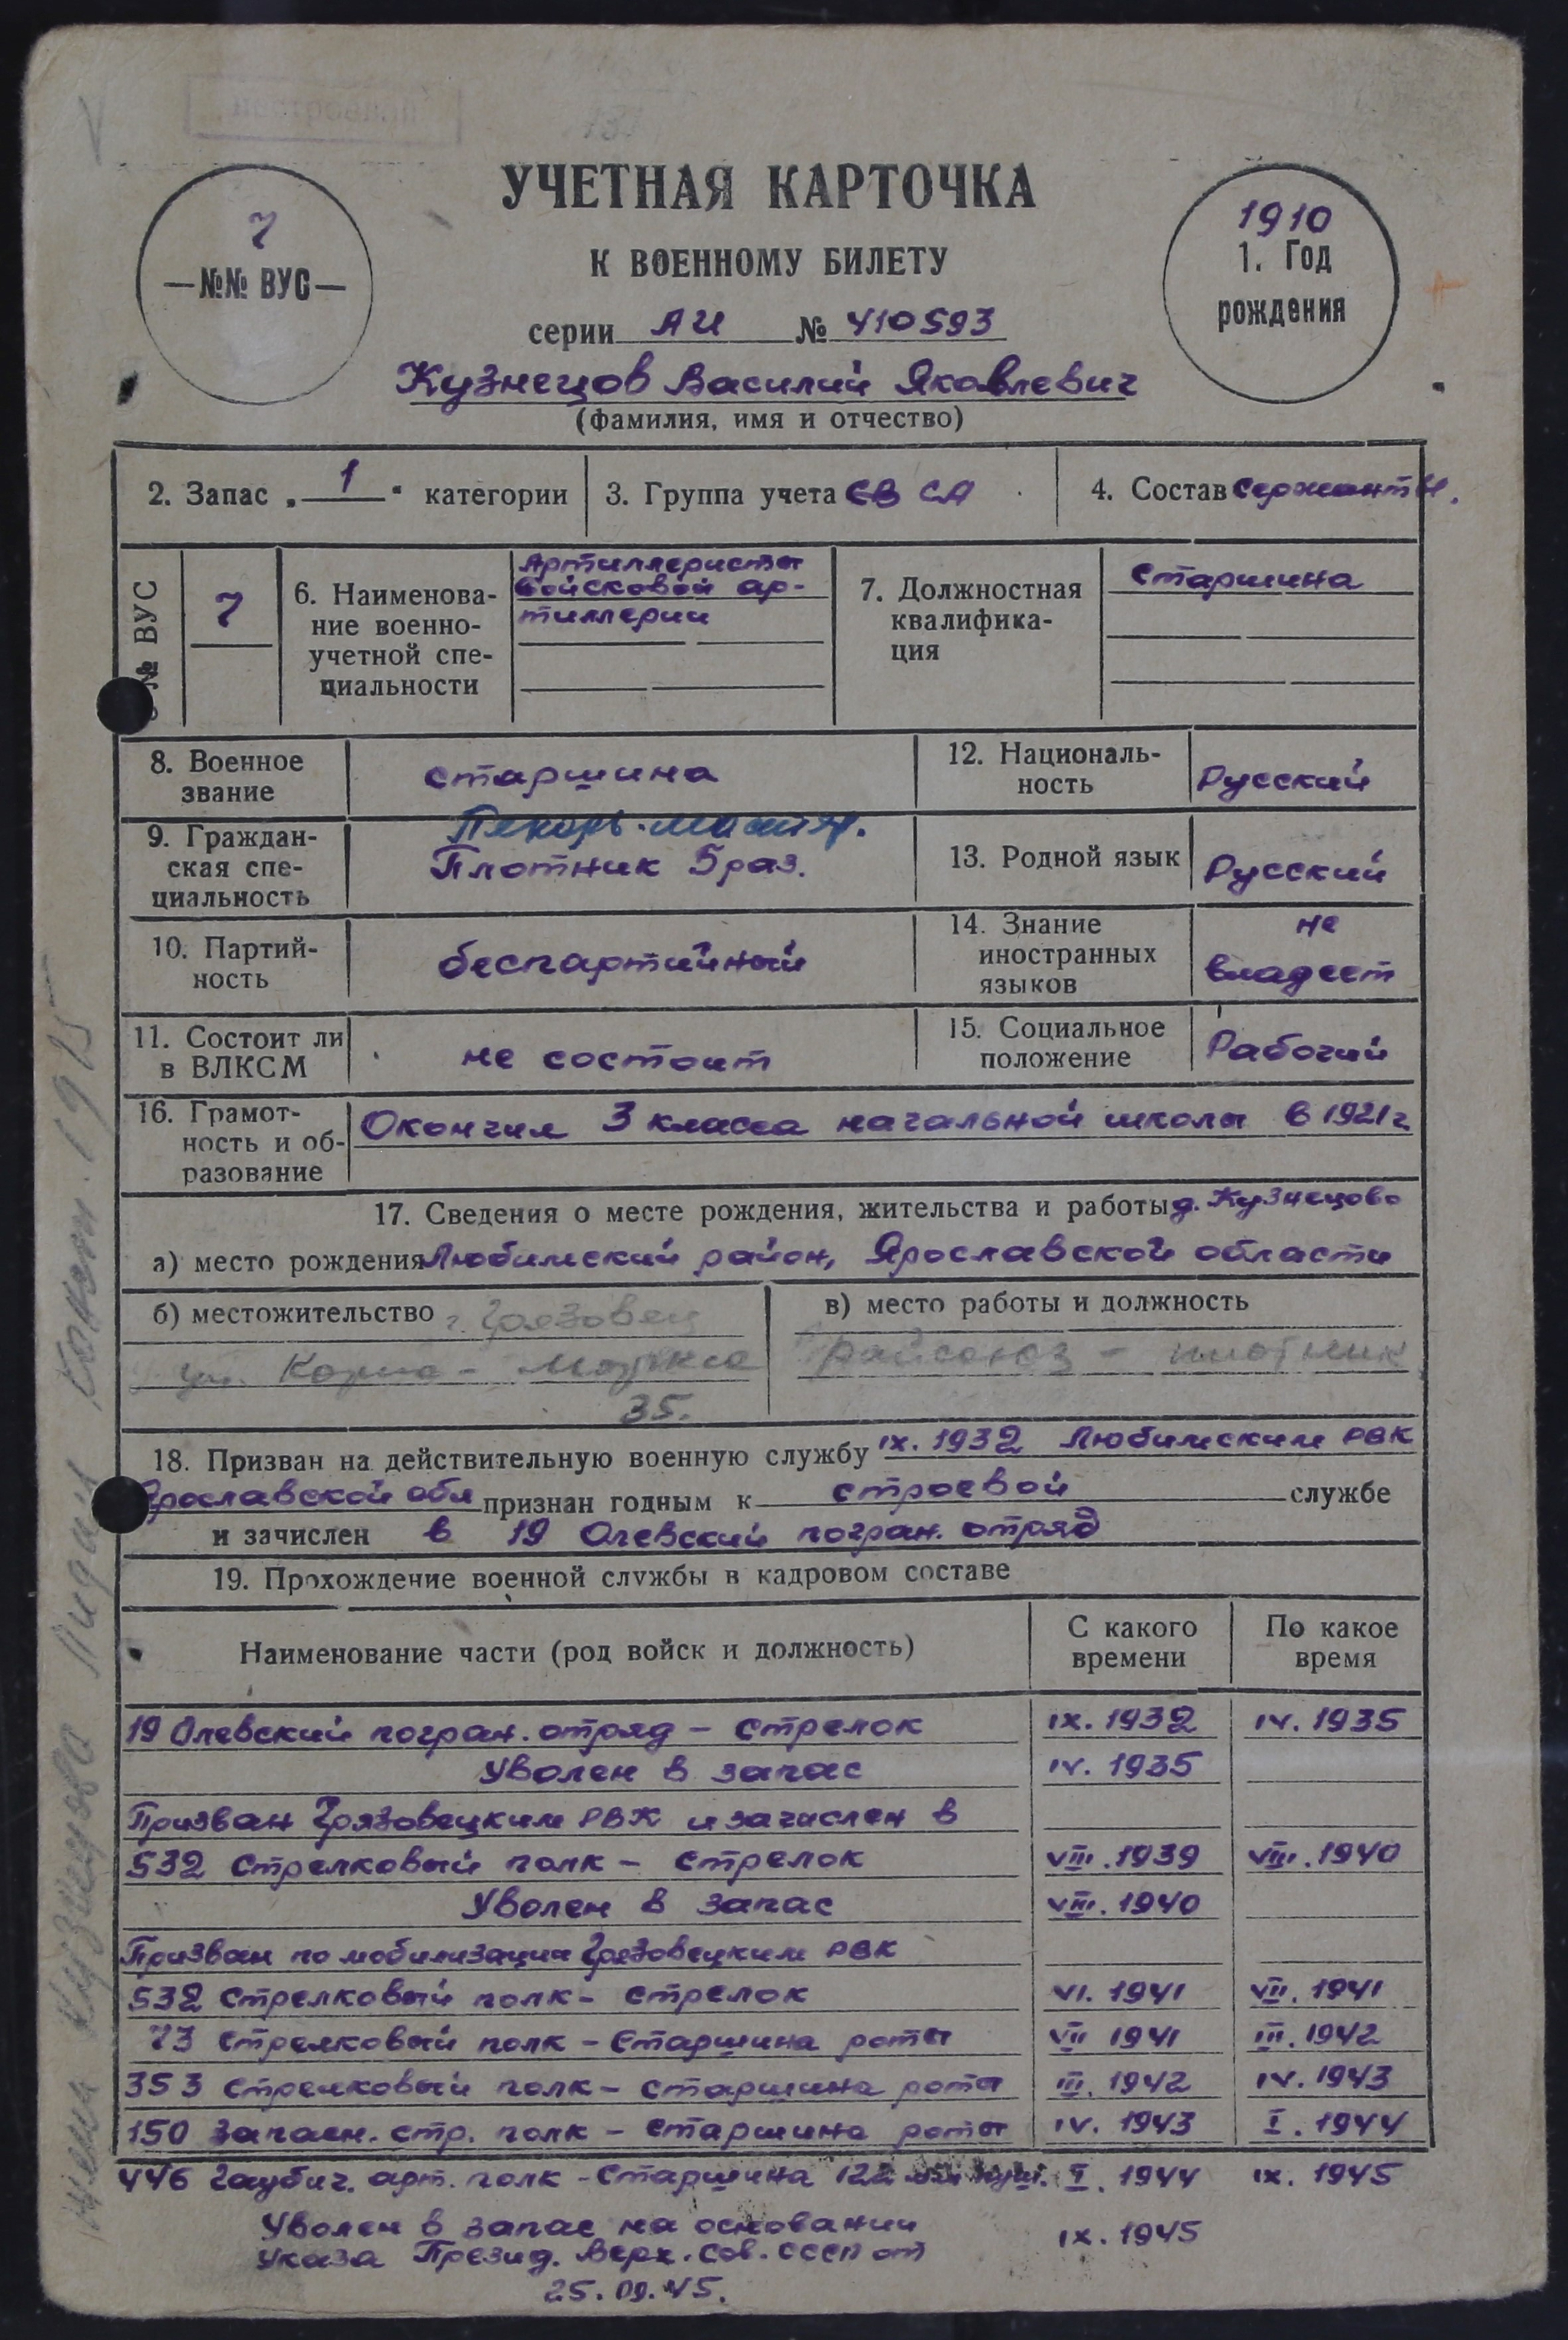 нестроевой
УЧЕТНАЯ КАРТОЧКА
К ВОЕННОМУ БИЛЕТУ
7
—№№ ВУС—
1910
1. Год
рождения
серии АИ № 410593
Кузнецов Василий Яковлевич
(фамилия, имя и отчество)
2. Запас „ 1 “ категории
3. Группа учета СВ СА
4. Состав Сержанты.
№ ВУС
7
6. Наименова-
ние военно-
учетной спе-
циальности
Артиллеристы
войсковой ар-
тиллерии
7. Должностная
квалифика-
ция
Старшина
8. Военное
звание
старшина
12. Националь-
ность
Русский
9. Граждан-
ская спе-
циальность
Пекарь-
Плотник 5 раз.
13. Родной язык
Русский
10. Партий-
ность
беспартийный
14. Знание
иностранных
языков
не
владеет
11. Состоит ли
в ВЛКСМ
не состоит
15. Социальное
положение
Рабочий
16. Грамот-
ность и об-
разование
Окончил 3 класса начальной школы в 1921 г
17. Сведения о месте рождения, жительства и работы д. Кузнецово
а) место рождения Любимский район, Ярославской области
б) местожительство г. Грязовец
ул. Карла-Маркса
35.
в) место работы и должность
Райсоюз - плотник
18. Призван на действительную военную службу IX. 1932 Любимским РВК
Ярославской обл признан годным к строевой службе
и зачислен в 19 Олевский погран. отряд
19. Прохождение военной службы в кадровом составе
Наименование части (род войск и должность)
С какого
времени
По какое
время
19 Олевский погран. отряд - стрелок IX. 1932 IV. 1935
Уволен в запас IV. 1935
Призван Грязовецким РВК и зачислен в
532 Стрелковый полк - стрелок VIII. 1939 VIII. 1940
Уволен в запас VIII. 1940
Призван по мобилизации Грязовецким РВК
532 Стрелковый полк - стрелок VI. 1941 VII. 1941
73 стрелковый полк - Старшина роты VII 1941 III. 1942
353 стрелковый полк - старшина роты III. 1942 IV. 1943
150 Запасн. стр. полк - старшина роты IV. 1943 I. 1944
446 Гаубич. арт. полк - Старшина 122 мм I. 1944 IX. 1945
Уволен в запас на основании IX. 1945
Указа Презид. Верх. Сов. СССР от
25.09.45.
жена Кузнецова Лидия